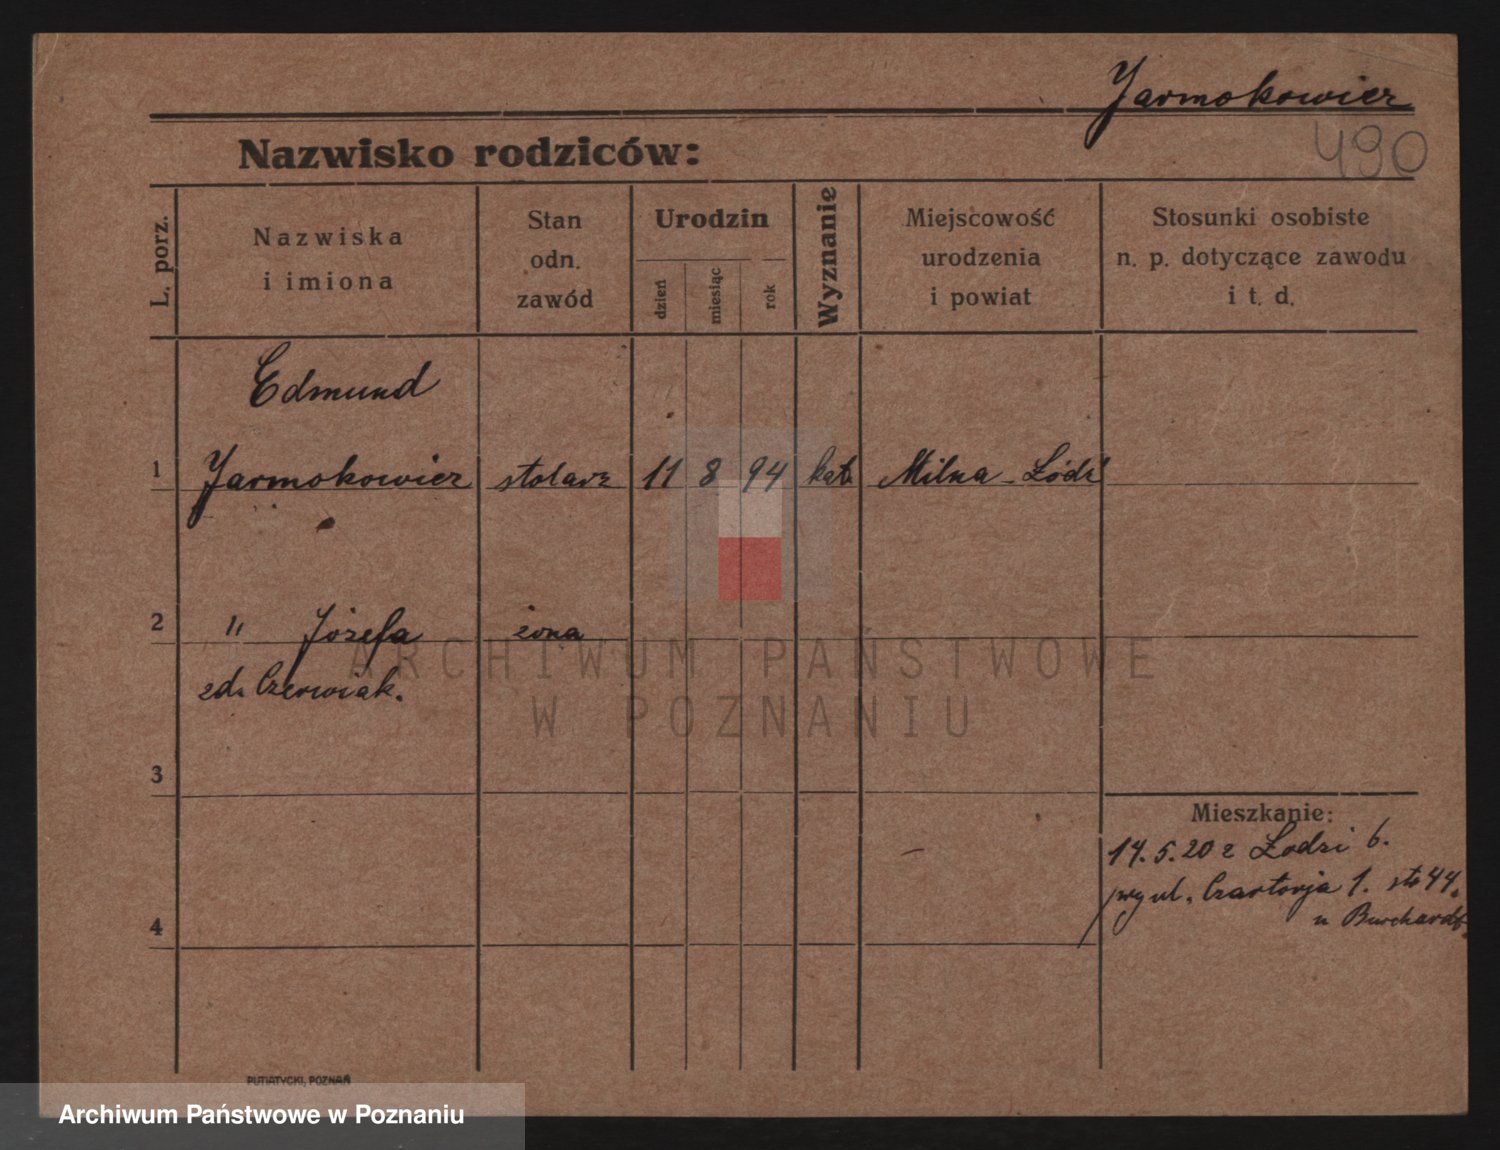 Jarmokowicz
490
Nazwisko rodziców:
L. porz.
Nazwiska
i imiona
Stan
odn.
zawód
Urodzin
dzień
miesiąc
rok
Wyznanie
Miejscowość
urodzenia
i powiat
Stosunki osobiste
n. p. dotyczące zawodu
i t. d.
Edmund
1 Jarmokowicz stolarz 11 8 94 kat. Milna - Łódź
2 " Józefa żona
zd. Czerwiak.
ARCHIWUM PAŃSTWOWE
W POZNANIU
3
Mieszkanie:
14.5.20 z Łodzi 6.
ul. Czartorja 1.
4
u Burchardt
PUTIATYCKI, POZNAŃ
Archiwum Państwowe w Poznaniu